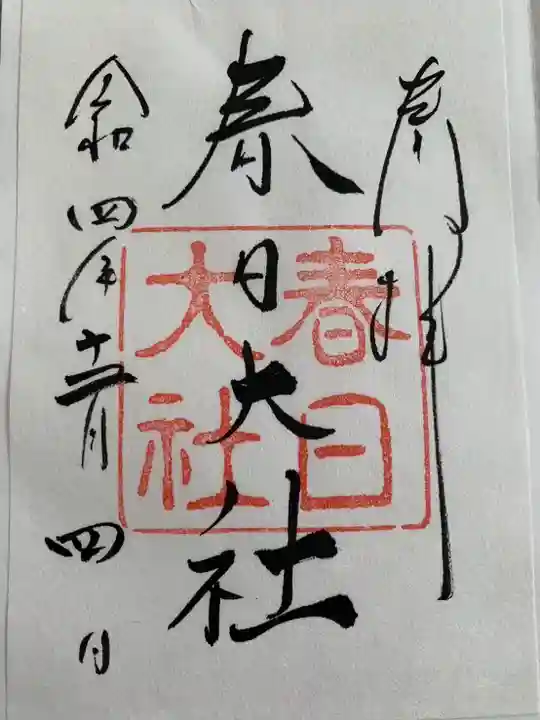 奉拝
春日大社
令和四年十二月四日
春日
大社